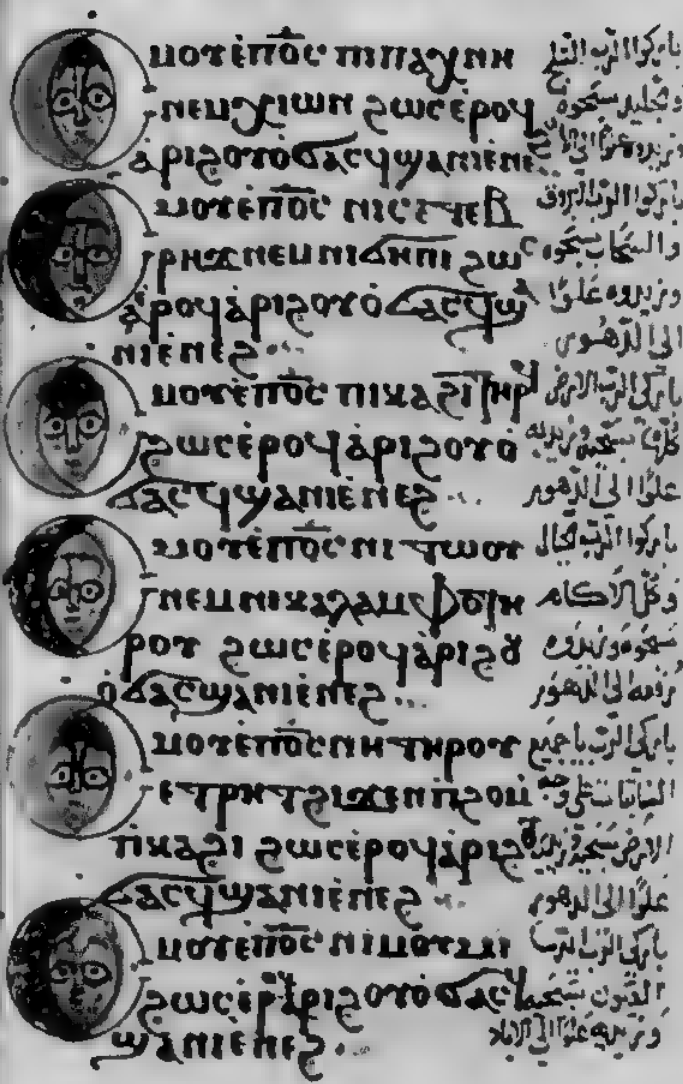 Ⲥⲙⲟⲩ ⲉ̀ⲡϭ̅ⲥ̅ ⲡⲓⲡⲁⲭⲛⲏ
ⲛⲉⲙ ⲡⲓⲭⲓⲱⲛ ϩⲱⲥ ⲉ̀ⲣⲟϥ
ⲁ̀ⲣⲓϩⲟⲩⲟ̀ ϭⲁⲥϥ ϣⲁ ⲛⲓⲉ̀ⲛⲉϩ
Ⲥⲙⲟⲩ ⲉ̀ⲡϭ̅ⲥ̅ ⲛⲓⲥⲉⲧⲉⲃ
ⲣⲏϫ ⲛⲉⲙ ⲛⲓϭⲏⲡⲓ ϩⲱⲥ
ⲉ̀ⲣⲟϥ ⲁ̀ⲣⲓϩⲟⲩⲟ̀ ϭⲁⲥϥ ϣⲁ
ⲛⲓⲉ̀ⲛⲉϩ
Ⲥⲙⲟⲩ ⲉ̀ⲡϭ̅ⲥ̅ ⲡⲓⲕⲁϩⲓ ⲧⲏⲣϥ
ϩⲱⲥ ⲉ̀ⲣⲟϥ ⲁ̀ⲣⲓϩⲟⲩⲟ̀
ϭⲁⲥϥ ϣⲁ ⲛⲓⲉ̀ⲛⲉϩ
Ⲥⲙⲟⲩ ⲉ̀ⲡϭ̅ⲥ̅ ⲛⲓⲧⲱⲟⲩ
ⲛⲉⲙ ⲛⲓⲕⲁⲗⲁⲙⲫⲟ ⲧⲏ
ⲣⲟⲩ ϩⲱⲥ ⲉ̀ⲣⲟϥ ⲁ̀ⲣⲓϩⲟⲩ
ⲟ̀ ϭⲁⲥϥ ϣⲁ ⲛⲓⲉ̀ⲛⲉϩ
Ⲥⲙⲟⲩ ⲉ̀ⲡϭ̅ⲥ̅ ⲛⲏ ⲧⲏⲣⲟⲩ
ⲉⲧⲣⲏⲧ ϩⲓϫⲉⲛ ⲡϩⲟ ⲙ̀
ⲡⲓⲕⲁϩⲓ ϩⲱⲥ ⲉ̀ⲣⲟϥ ⲁ̀ⲣⲓϩⲟⲩⲟ̀
ϭⲁⲥϥ ϣⲁ ⲛⲓⲉ̀ⲛⲉϩ
Ⲥⲙⲟⲩ ⲉ̀ⲡϭ̅ⲥ̅ ⲛⲓⲙⲟⲩⲙⲓ
ϩⲱⲥ ⲉ̀ⲣⲟϥ ⲁ̀ⲣⲓϩⲟⲩⲟ̀ ϭⲁⲥϥ
ϣⲁ ⲛⲓⲉ̀ⲛⲉϩ
باركوا الرب الثلج
والجليد سبحوه
وزيدوه علوا الى
باركوا الرب البروق
والسحاب سبحوه
وزيدوه علوا
الى الدهور
باركي الرب الارض
كلها سبحيه وزيديه
علوا الى الدهور
باركوا الرب الجبال
وكل الاكام
سبحوه وزيدوه
رفعه الى الدهور
باركي الرب يا جميع
النباتات على وجه
الارض سبحيه وزيديه
علوا الى الدهور
باركي الرب
العيون سبحيه
وزيديه علوا الى الابد